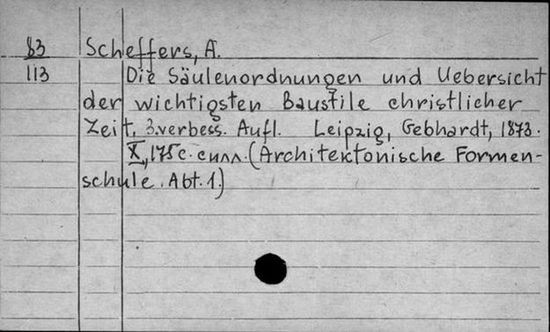 83 Scheffers, A.
113 Die Säulenordnungen und Uebersicht
der wichtigsten Baustile christlicher
Zeit, 3.verbess. Aufl. Leipzig, Gebhardt, 1873.
X, 175 c. с илл. (Architektonische Formen-
schule. Abt. 1.)